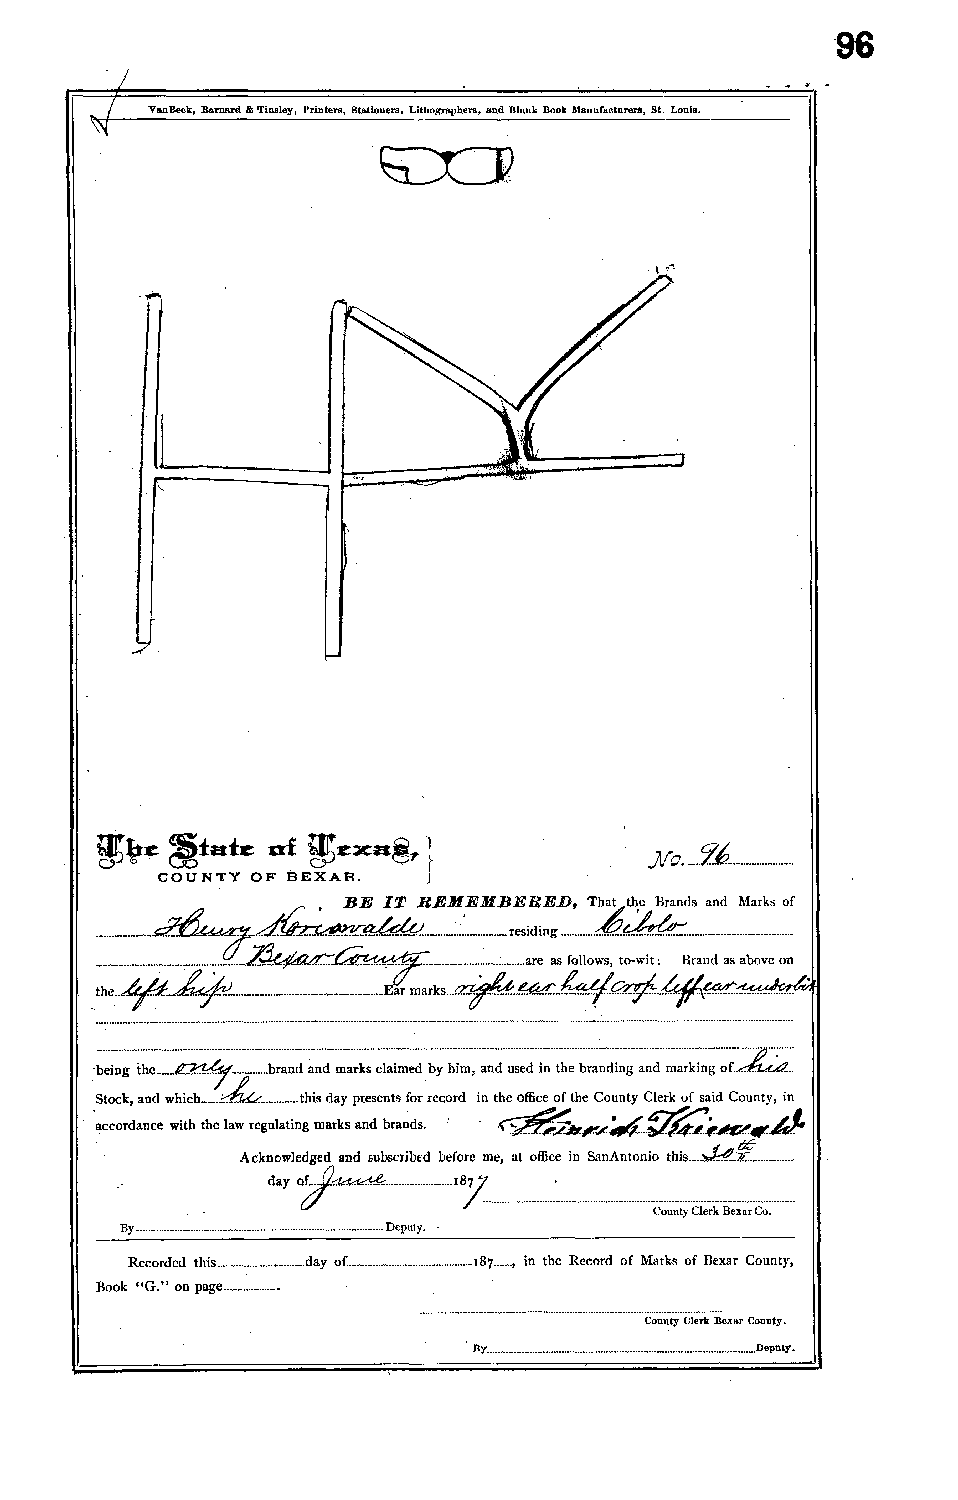 96
VanBeek, Barnard & Tinsley, Printers, Stationers, Lithographers, and Blank Book Manufacturers, St. Louis.
The State of Texas,
COUNTY OF BEXAR.
No. 96
BE IT REMEMBERED, That the Brands and Marks of
Henry Koriswalde residing Cibolo
Bexar County are as follows, to-wit: Brand as above on
the left hip Ear marks right ear half crop left ear underbit
being the only brand and marks claimed by him, and used in the branding and marking of his
Stock, and which he this day presents for record in the office of the County Clerk of said County, in
accordance with the law regulating marks and brands. Heinrich Kriewald
Acknowledged and subscribed before me, at office in SanAntonio this 30th
day of June 1877
County Clerk Bexar Co.
By Deputy.
Recorded this day of 187 , in the Record of Marks of Bexar County,
Book "G." on page .
County Clerk Bexar County.
By Deputy.